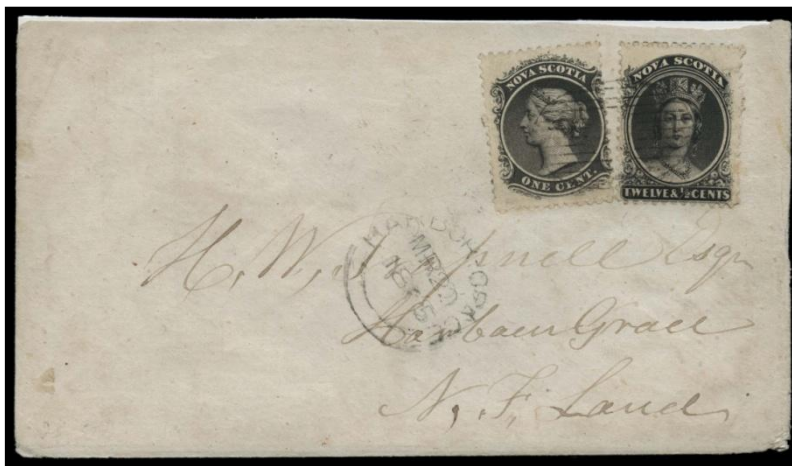 NOVA SCOTIA
ONE CENT.
NOVA SCOTIA
TWELVE & ½ CENTS
H. W. Esqr
Harbour Grace
N. F. Land